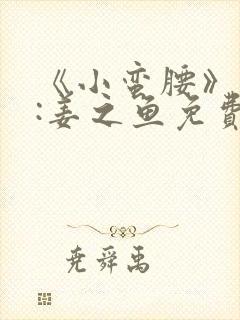 《小蛮腰》
:姜之鱼免費
尧舜禹